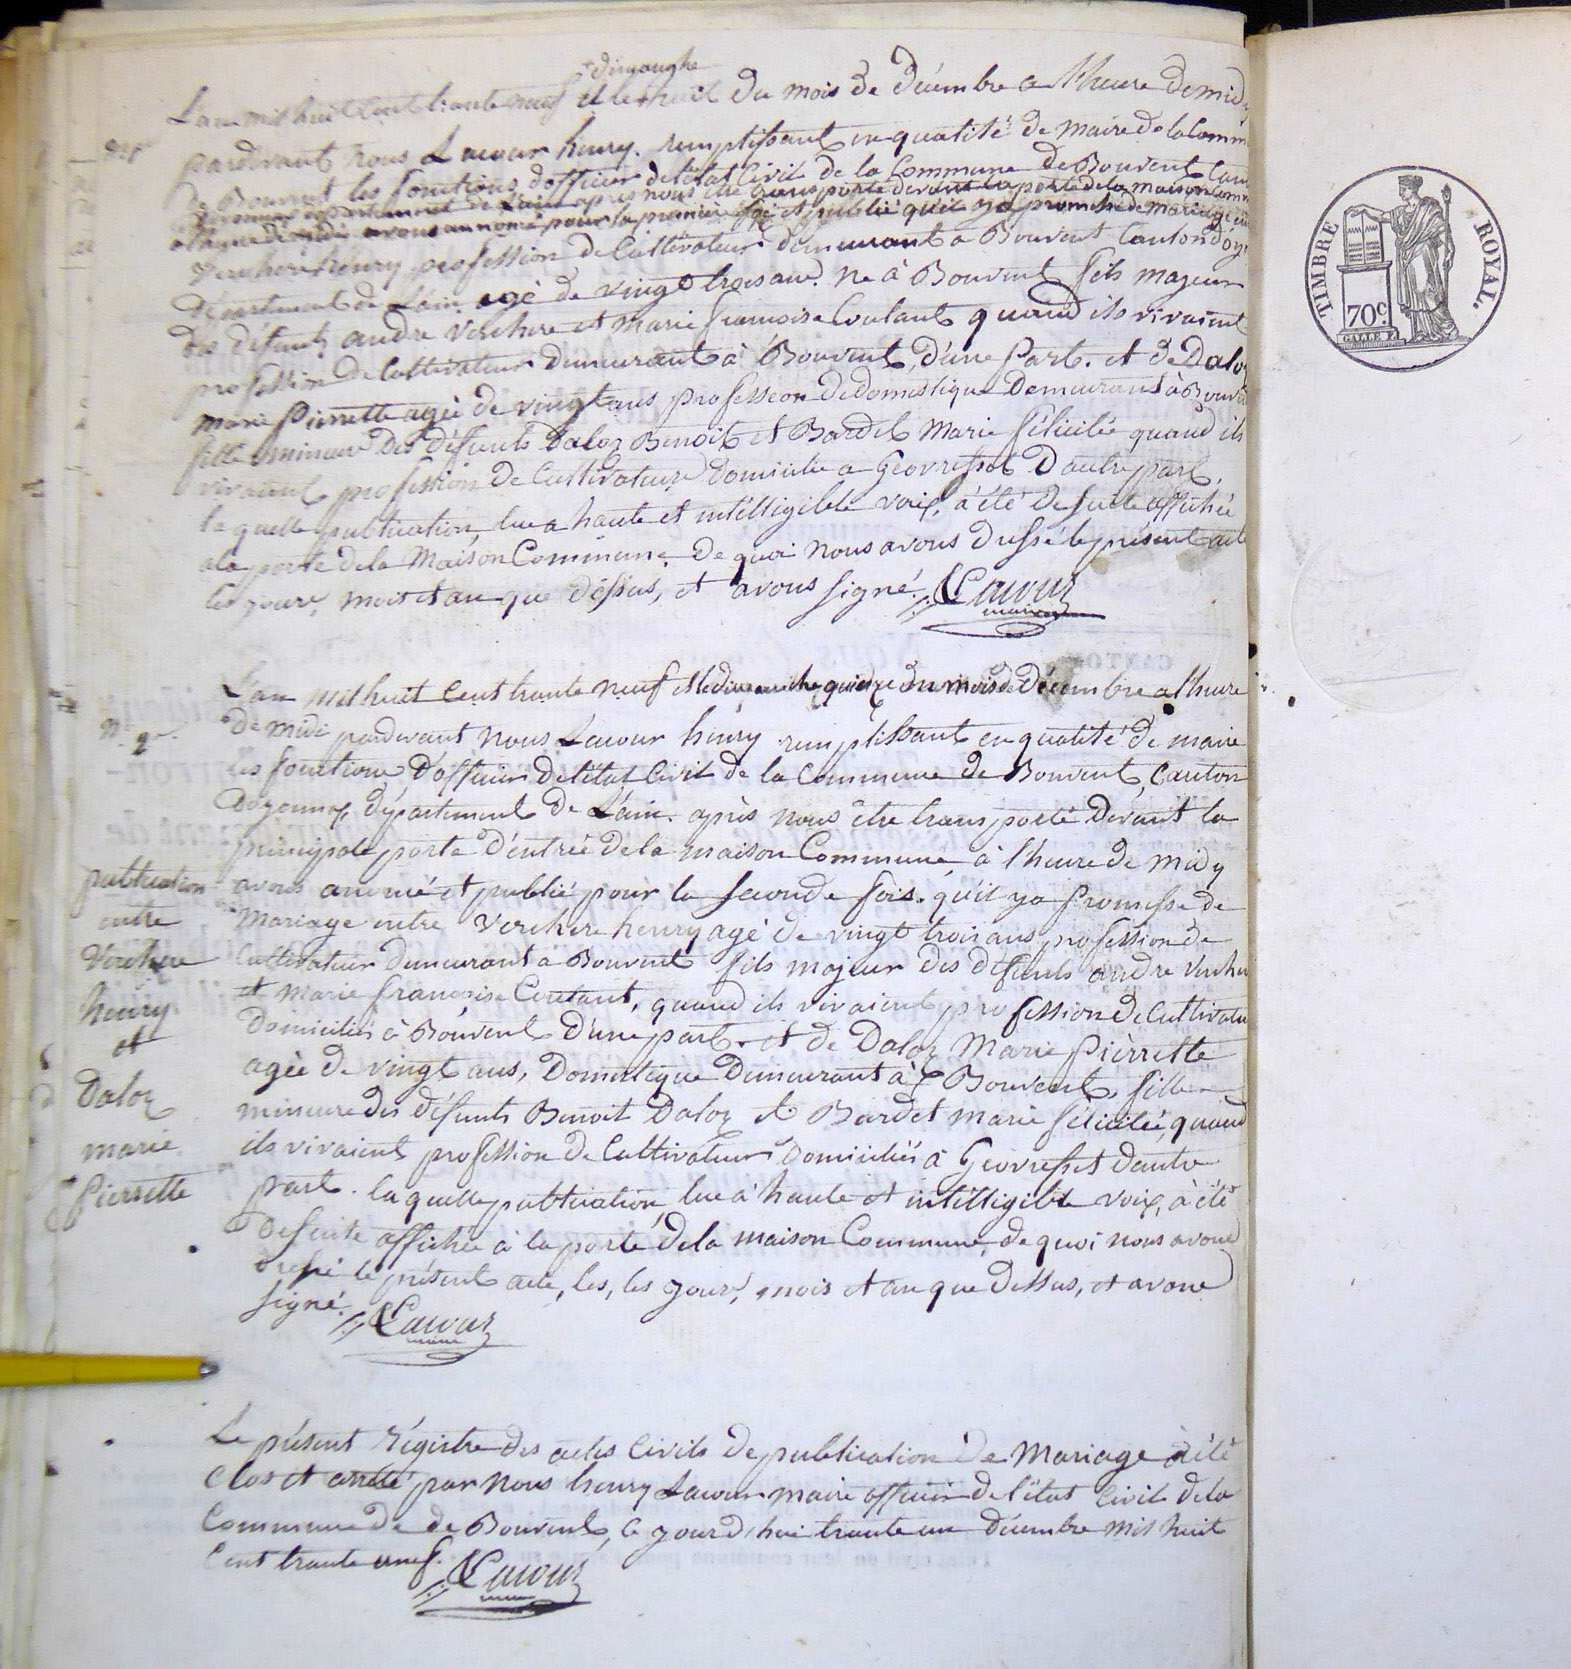 + dimanche
L'an mil huit cent trante neuf et le huit du mois de décembre a l'heure de midi
N° 1er
pardevant nous Lacour henry. remplissant en qualité de maire de la Comm
de Bouvent les fonctions d'officier de l'état Civil de la Commune de Bouvent Can
département de Lain apres nous être transporté devant la porte de la maison Comm
a l'heure de midi avons annoncé pour la premiere fois et publié qu'il y a promesse de mariage en
Verchere henry profession de Cultivateur demeurant a Bouvent Canton d'oy
département de Lain agé de vingt trois ans. né à Bouvent fils majeur
des défunts andre Verchere et marie francoise Coulant quand ils vivaient
profession de Cultivateur demeurant à Bouvent, d'une part. et de Daloz
marie Pierrette agée de vingt ans profession de domestique Demeurant à Bouven
fille mineure des défunts Daloz Benoit et Bardet Marie félicité quand ils
vivaient profession de Cultivateurs domicilié a Géovresset D'autre part,
la quelle publication, lue a haute et intélligible voix, à été de suite affichée
a la porte de la Maison Commune. De quoi nous avons dressé le présent acte
les jours, mois et an que dessus, et avons signé. Lacour
maire
L'an mil huit Cent trante neuf et le dimanche quinze du mois de Décembre a l'heure
N° 2e
de midi pardevant nous Lacour henry remplissant en qualité de maire
les fonctions d'officier de l'état Civil de la Commune de Bouvent, Canton
doyonnax, département de L'ain. après nous être transporté devant la
principale porte d'entrée de la maison Commune, à l'heure de midy
avons anoncé et publié pour la seconde fois. qu'il y a promesse de
mariage entre Verchere henry agé de vingt trois ans profession de
Cultivateur demeurant à Bouvent fils majeur des défunts andre Verche
et marie francoise Coutant, quand ils vivaient profession de Cultivateu
domiciliés à Bouvent D'une part. et de Daloz Marie Pièrrette
agée de vingt ans, Domestique demeurant à Bouvent, fille
mineure des défunts Benoit Daloz et Bardet marie félicité, quand
ils vivaient profession de Cultivateurs domiciliés à Géovresset d'autre
part. la quelle publication, lue à haute et intélligible voix, à été
de suite affichée à la porte de la maison Commune, de quoi nous avons
dressé le présent acte, les, les jours, mois et an que dessus, et avons
signé. Lacour
maire
publication
entre
Verchere
henry
et
Daloz
marie
Pierrette
Le présent régistre des actes Civils de publication de Mariage à été
Clos et arrété par nous henry Lacour maire officier de l'état Civil de la
Commune de de Bouvent, ce jourd'hui trante un décembre mil huit
Cent trante neuf. Lacour
maire
TIMBRE ROYAL.
70c.